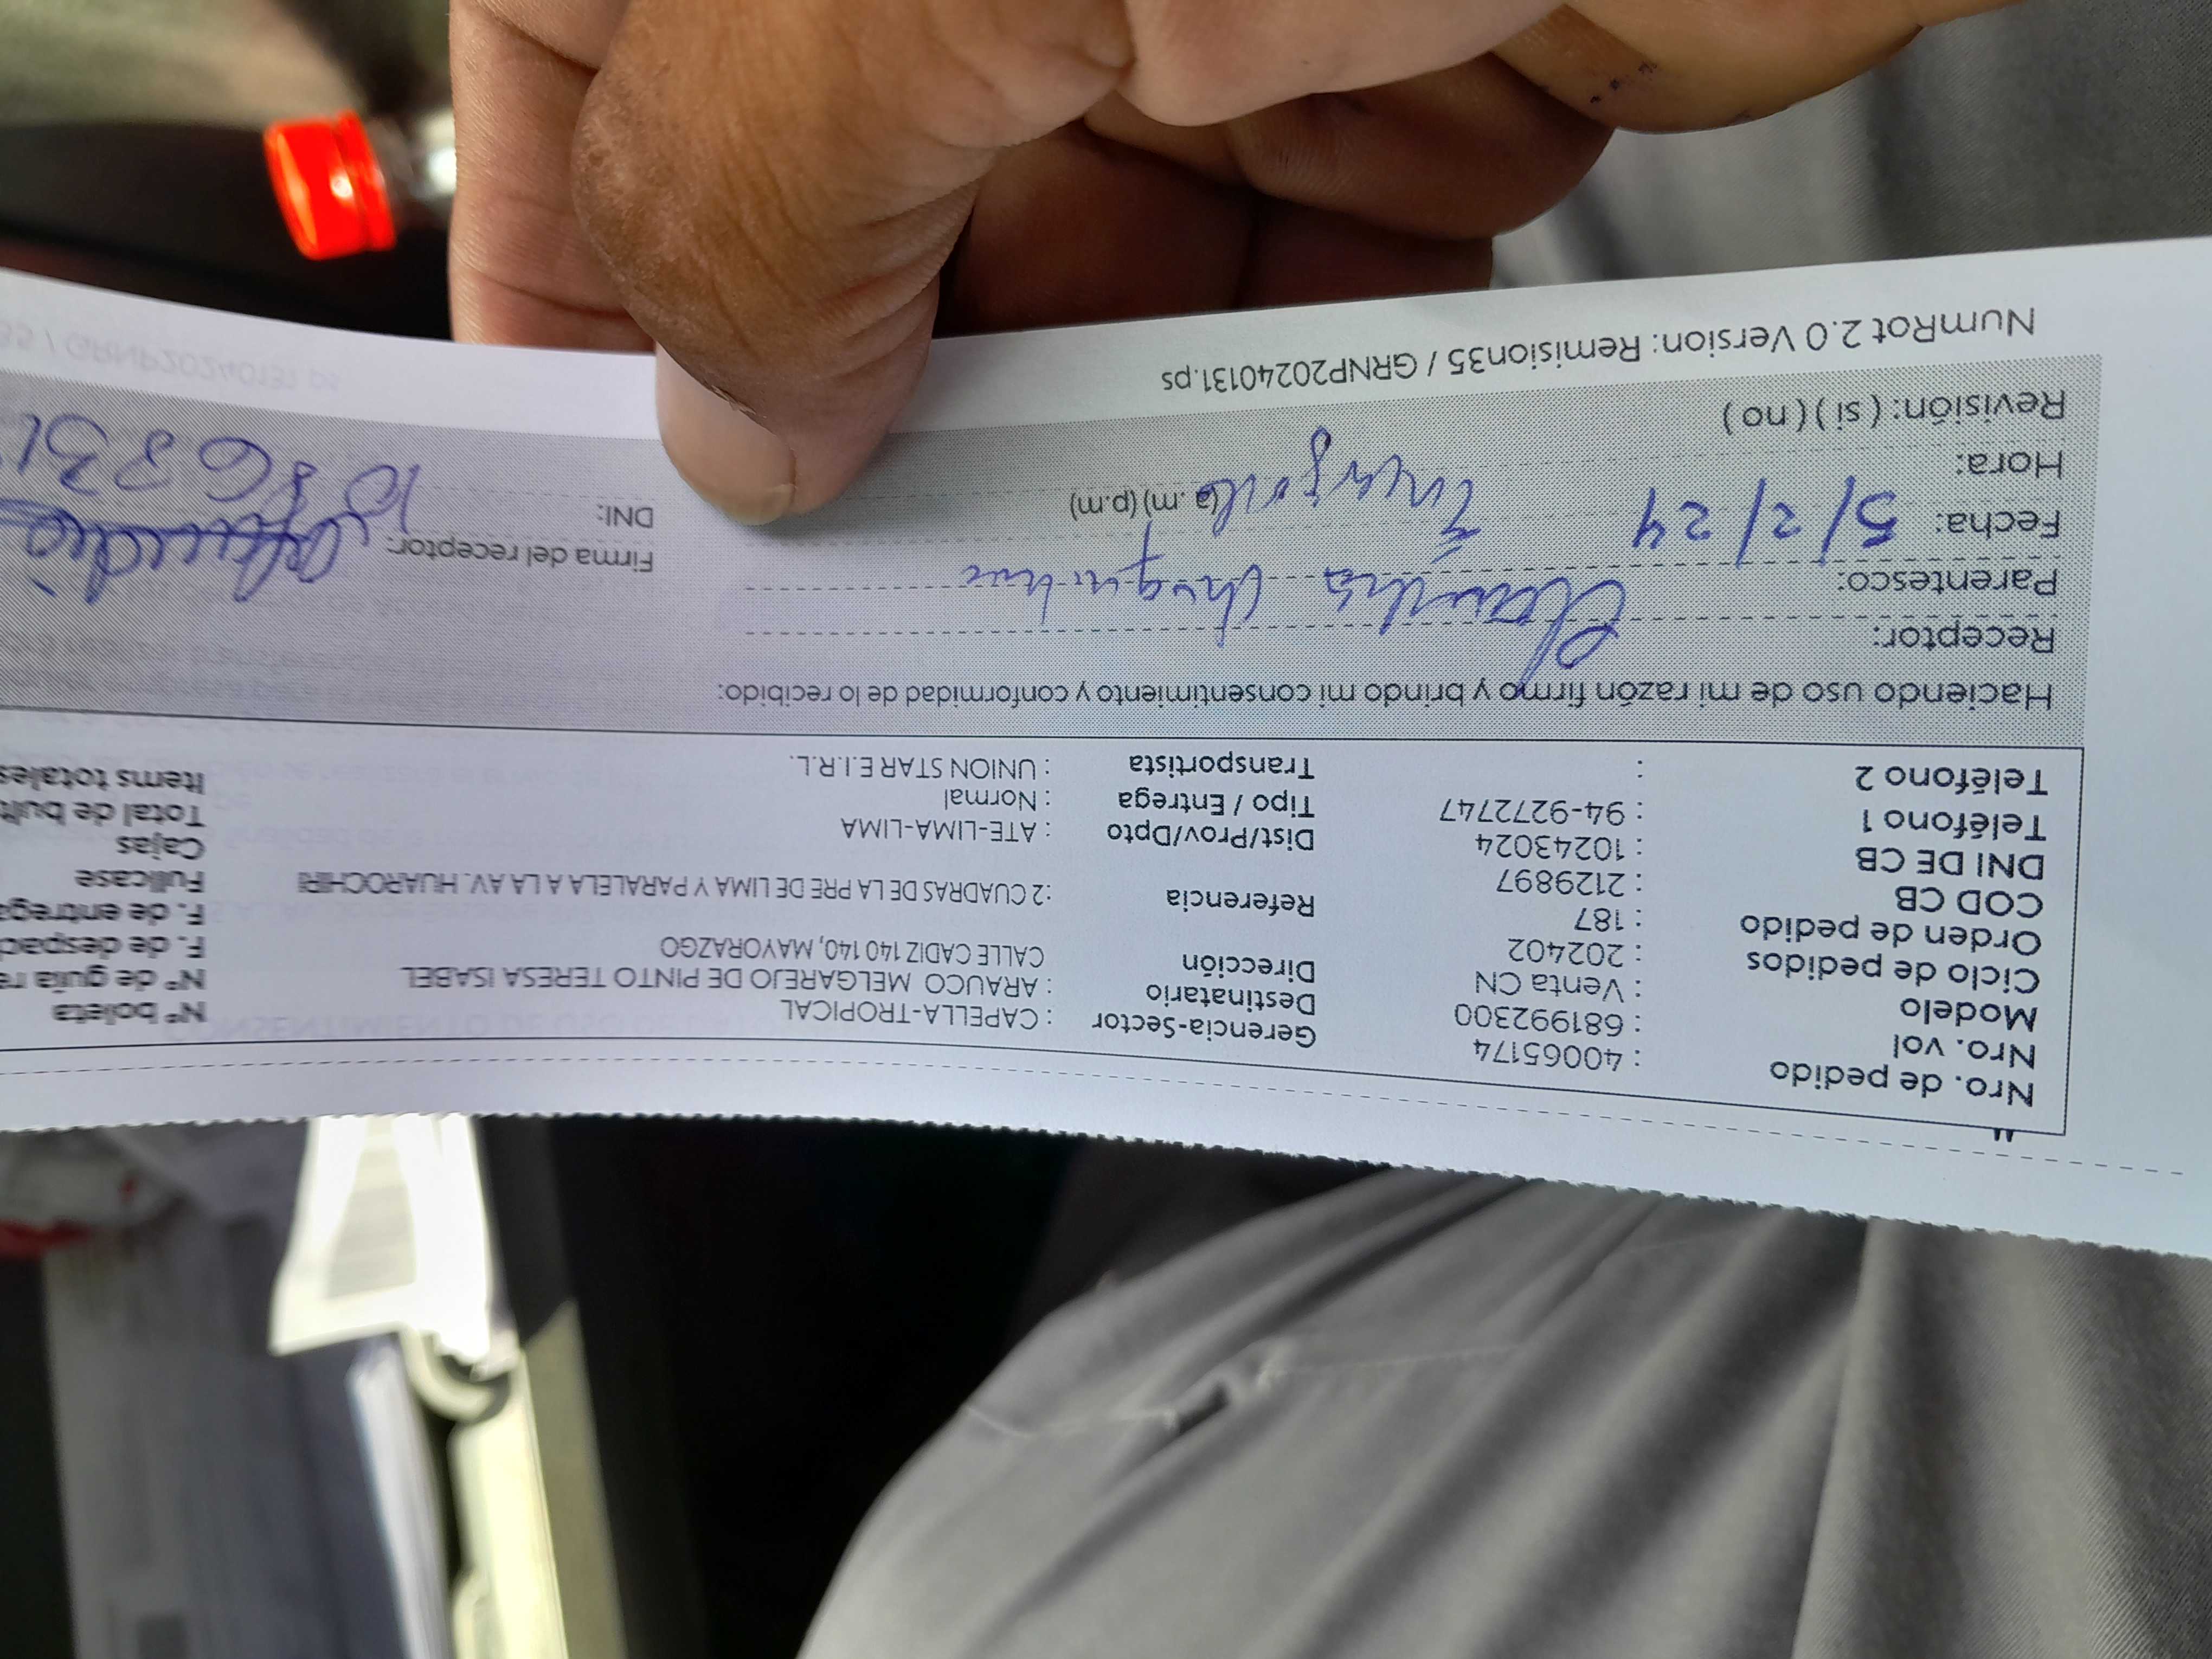 Nro. de pedido : 40065174 Gerencia-Sector : CAPELLA-TROPICAL Nº boleta
Nro. vol : 681992300 Destinatario : ARAUCO MELGAREJO DE PINTO TERESA ISABEL Nº de guía re
Modelo : Venta CN Dirección CALLE CADIZ 140 140, MAYORAZGO F. de despac
Ciclo de pedidos : 202402 Referencia : 2 CUADRAS DE LA PRE DE LIMA Y PARALELA A LA AV. HUAROCHIRI F. de entrega
Orden de pedido : 187 Fullcase
COD CB : 2129897 Dist/Prov/Dpto : ATE-LIMA-LIMA Cajas
DNI DE CB : 10243024 Tipo / Entrega : Normal Total de bult
Teléfono 1 : 94-9272747 Transportista : UNION STAR E.I.R.L. Items totales
Teléfono 2 :
Haciendo uso de mi razón firmo y brindo mi consentimiento y conformidad de lo recibido:
Receptor:
Parentesco: Firma del receptor:
Fecha: 5/2/24 DNI:
Hora: (a.m)(p.m)
Revisión: ( si ) ( no )
NumRot 2.0 Version: Remision35 / GRNP20240131.ps